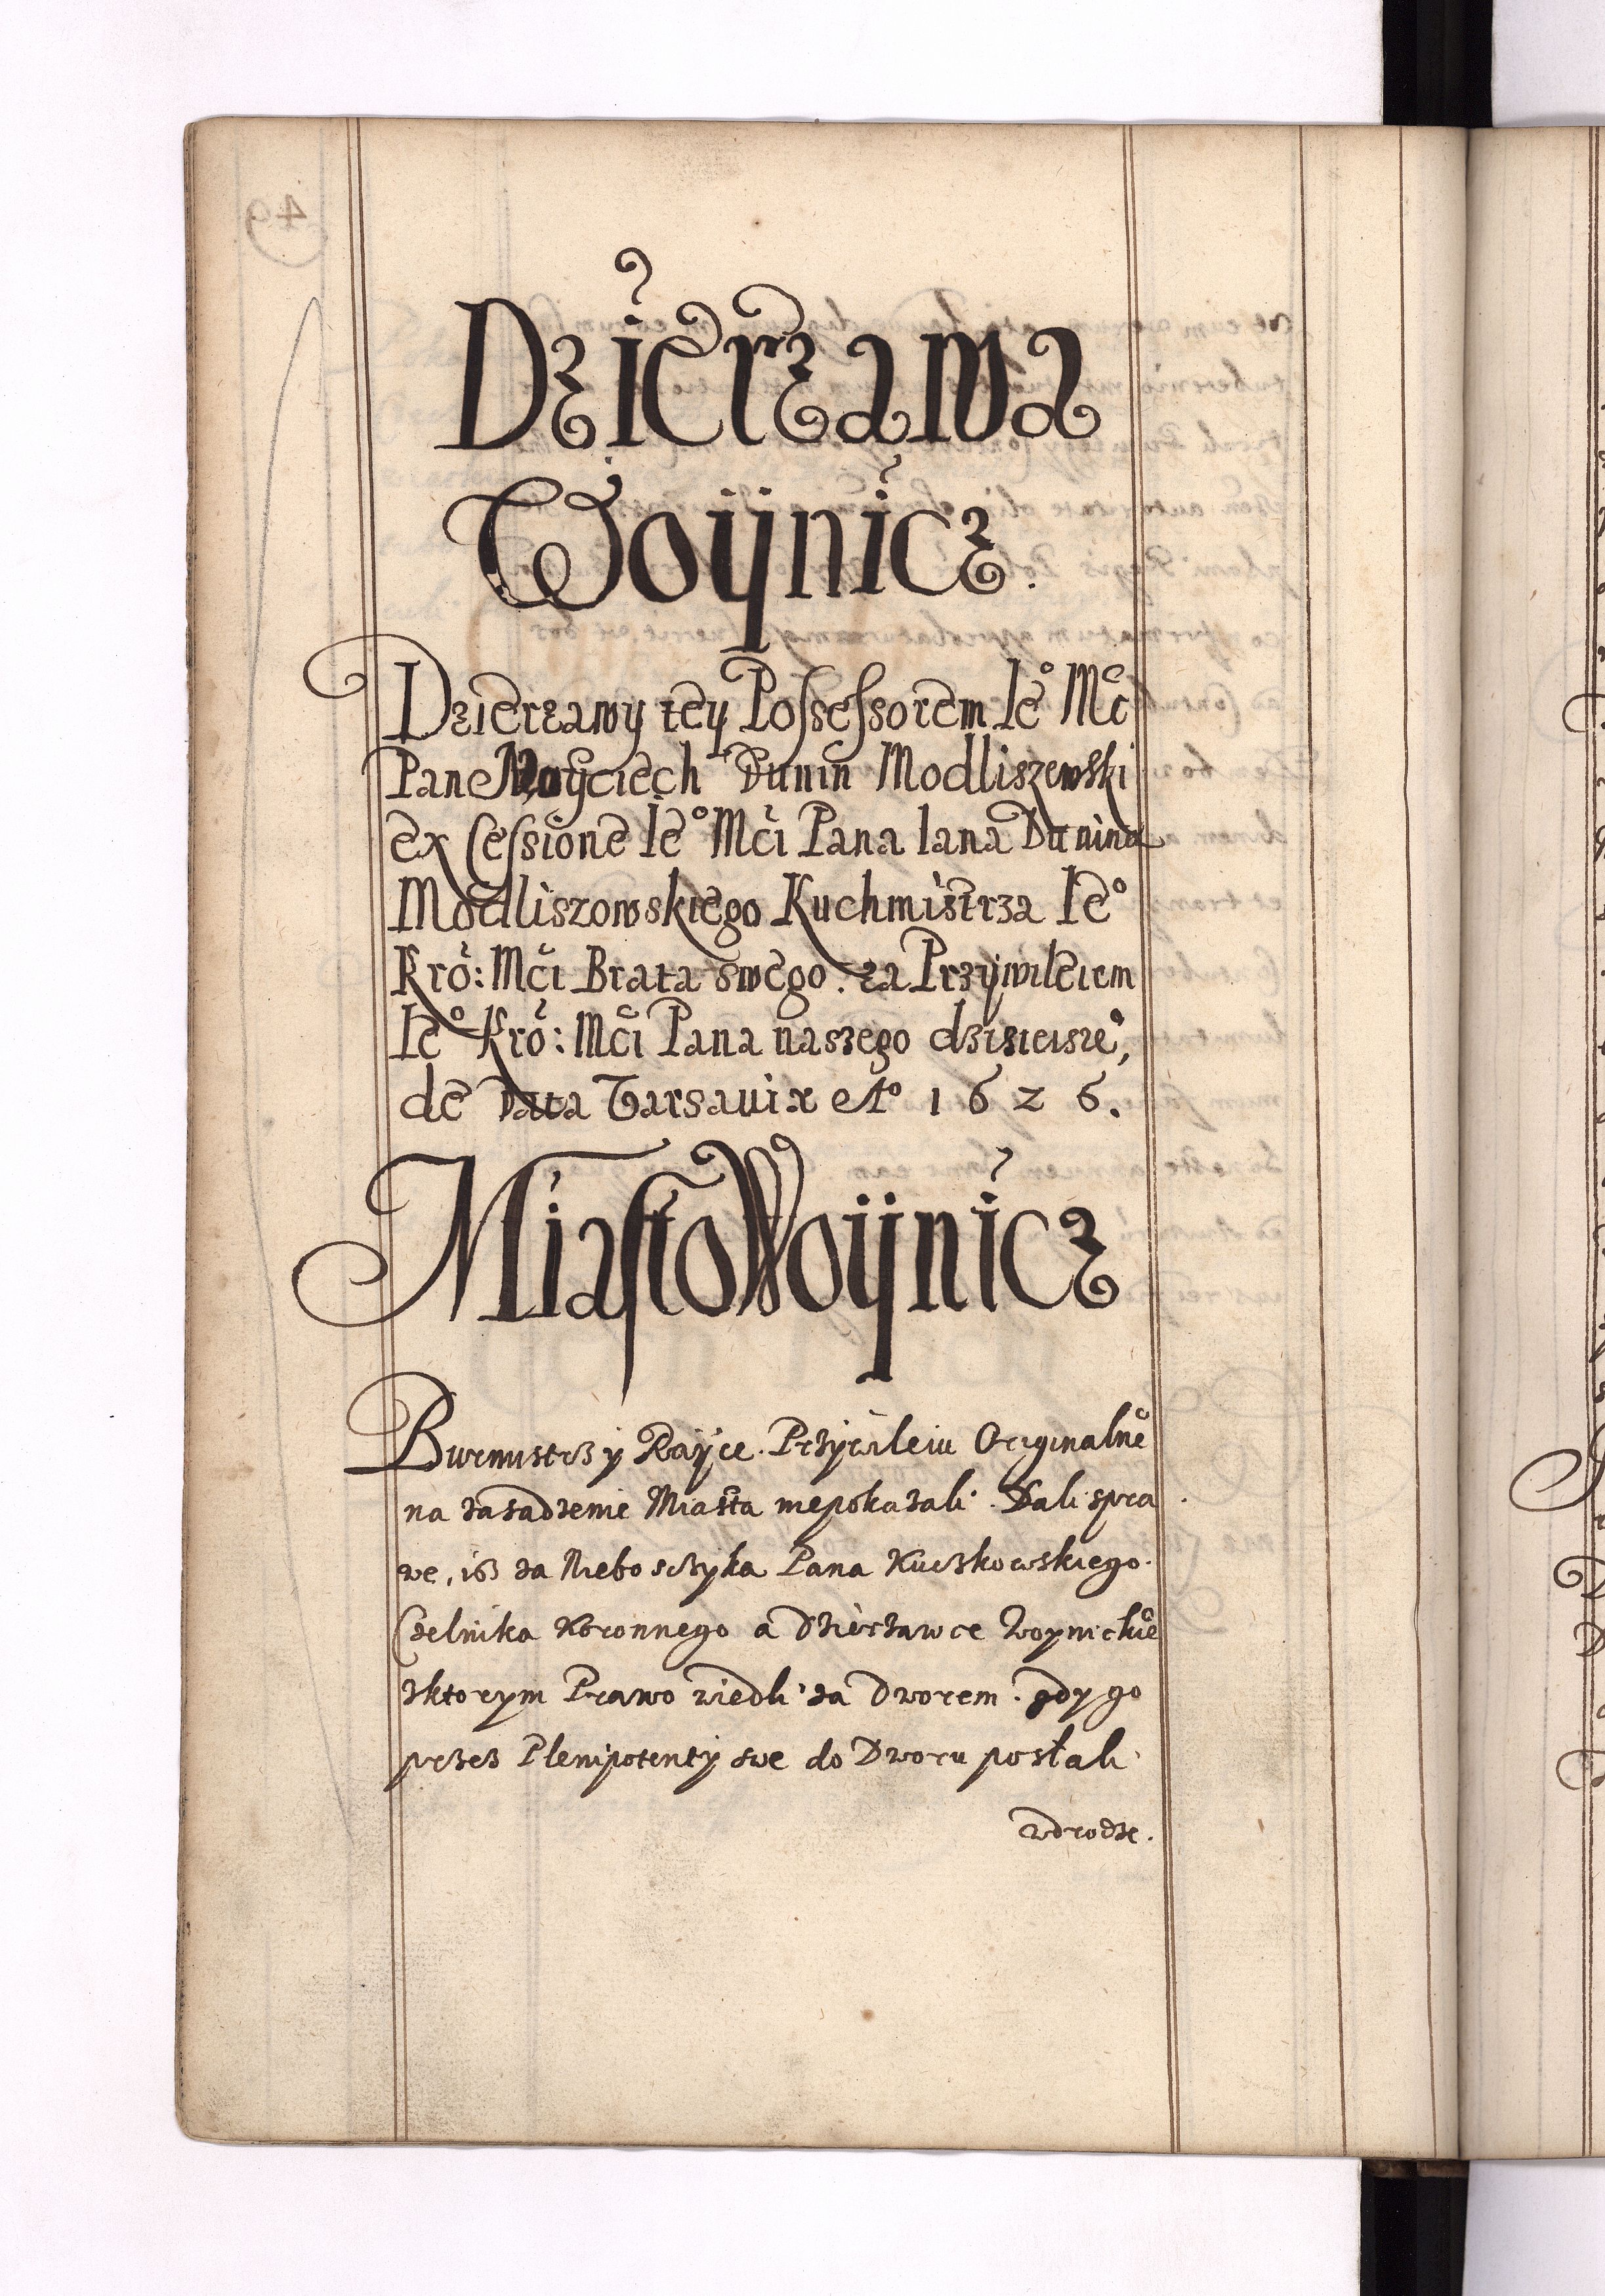 Dzierzawa
Woÿnicz.
Dzierzawy tey Possessorem Ie° Mć
Pan Woyciech Dunin Modliszewski
ex Cessione Ie° Mći Pana Iana Dunina
Modliszowskiego Kuchmistrza Ie°
Kró: Mći Brata swego. za Przÿwileiem
Ie° Kró: Mći Pana naszego dzisieisze°,
de Data Varsaviæ A° 1626.
Miasto Woÿnicz
Burmistrz y Raÿce. Przywileiu Originalne°
na zasadzenie Miasta niepokazali. Dali spra
we, isz za Nieboszczyka Pana Kuczkowskiego.
Celnika Koronnego a Dzierzawce Woynickie°
zktorym Prawo wiedli za Dworem. gdy go
przez Plenipotenty swe do Dworu posłali
wdrodze.